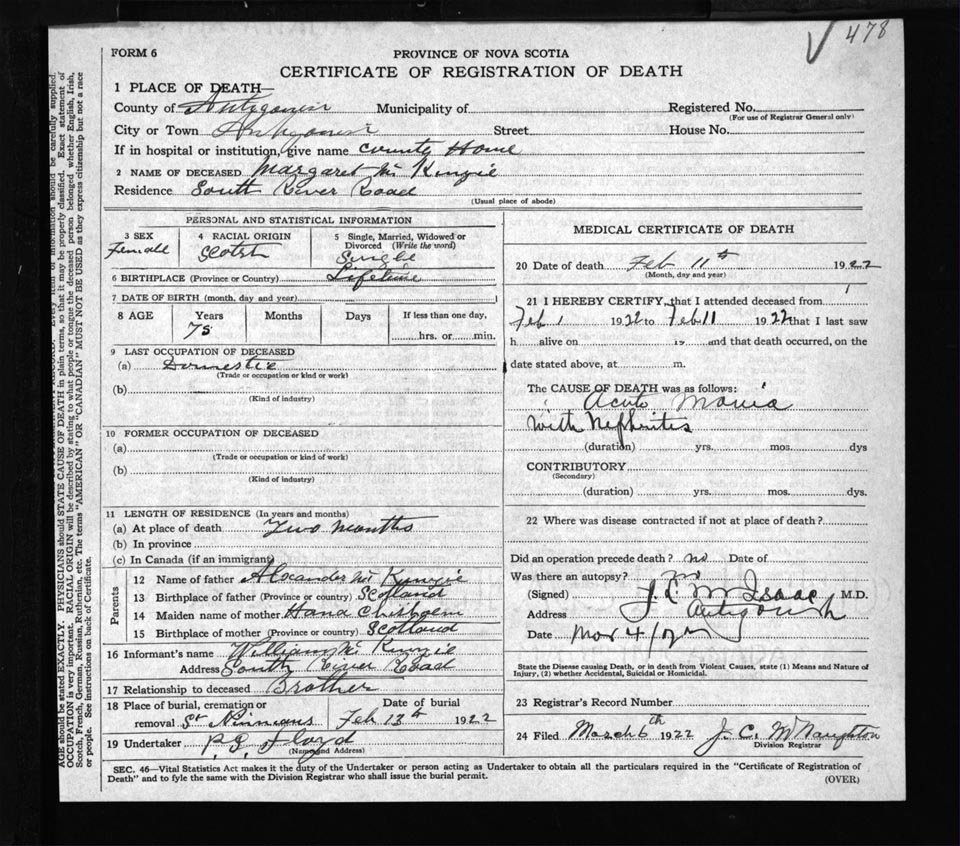 478
FORM 6
PROVINCE OF NOVA SCOTIA
CERTIFICATE OF REGISTRATION OF DEATH
1 PLACE OF DEATH—
County of Antigonish Municipality of Registered No.
(For use of Registrar General only)
City or Town Antigonish Street House No.
If in hospital or institution, give name County Home
2 NAME OF DECEASED Margaret McKenzie
Residence South River Road
(Usual place of abode)
PERSONAL AND STATISTICAL INFORMATION
3 SEX Female
4 RACIAL ORIGIN Scotch
5 Single, Married, Widowed or Divorced (Write the word) Single
6 BIRTHPLACE (Province or Country) Lifetime
7 DATE OF BIRTH (month, day and year)
8 AGE Years 75 Months Days If less than one day, hrs. or min.
9 LAST OCCUPATION OF DECEASED
(a) Domestic
(Trade or occupation or kind or work)
(b)
(Kind of industry)
10 FORMER OCCUPATION OF DECEASED
(a)
(Trade or occupation or kind of work)
(b)
(Kind of industry)
11 LENGTH OF RESIDENCE (In years and months)
(a) At place of death Two months
(b) In province
(c) In Canada (if an immigrant)
Parents
12 Name of father Alexander McKenzie
13 Birthplace of father (Province or country) Scotland
14 Maiden name of mother Hana Chisholm
15 Birthplace of mother (Province or country) Scotland
16 Informant's name William McKenzie
Address South River Road
17 Relationship to deceased Brother
18 Place of burial, cremation or removal St Ninnians
Date of burial Feb 13th 1922
19 Undertaker P.S. Floyd
(Name and Address)
MEDICAL CERTIFICATE OF DEATH
20 Date of death Feb 11th 1922
(Month, day and year)
21 I HEREBY CERTIFY, that I attended deceased from
Feb 1 1922 to Feb 11 1922 that I last saw
h alive on 19 and that death occurred, on the
date stated above, at m.
The CAUSE OF DEATH was as follows:
Acute Mania
with Nephrites
(duration) yrs. mos. dys
CONTRIBUTORY
(Secondary)
(duration) yrs. mos. dys.
22 Where was disease contracted if not at place of death?
Did an operation precede death? no Date of
Was there an autopsy? no
(Signed) McIsaac M.D.
Address Antigonish
Date Mar 4/22
State the Disease causing Death, or in death from Violent Causes, state (1) Means and Nature of
Injury, (2) whether Accidental, Suicidal or Homicidal.
23 Registrar's Record Number
24 Filed March 6th 1922 J. C. McNaughton
Division Registrar
SEC. 46—Vital Statistics Act makes it the duty of the Undertaker or person acting as Undertaker to obtain all the particulars required in the "Certificate of Registration of
Death" and to fyle the same with the Division Registrar who shall issue the burial permit.
(OVER)
AGE should be stated EXACTLY. PHYSICIANS should STATE CAUSE OF DEATH in plain terms, so that it may be properly classified. Exact statement of
OCCUPATION is very important. RACIAL ORIGIN will be described by stating to what people or tongue the deceased person belonged whether English, Irish,
Scotch, French, German, Russian, Ruthenian, etc. The terms "AMERICAN" OR "CANADIAN" MUST NOT BE USED as they express citizenship but not a race
or people. See instructions on back of Certificate.